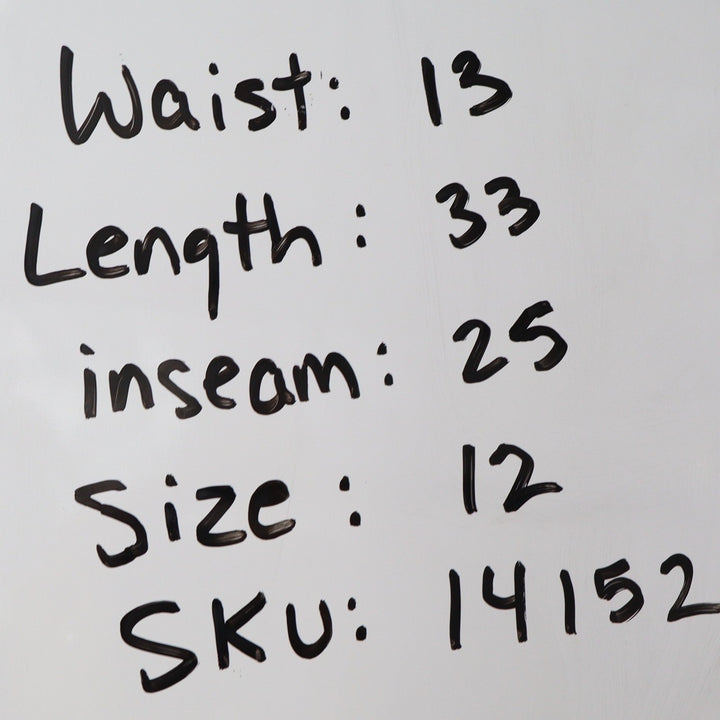 Waist: 13
Length: 33
inseam: 25
Size: 12
SKU: 14152